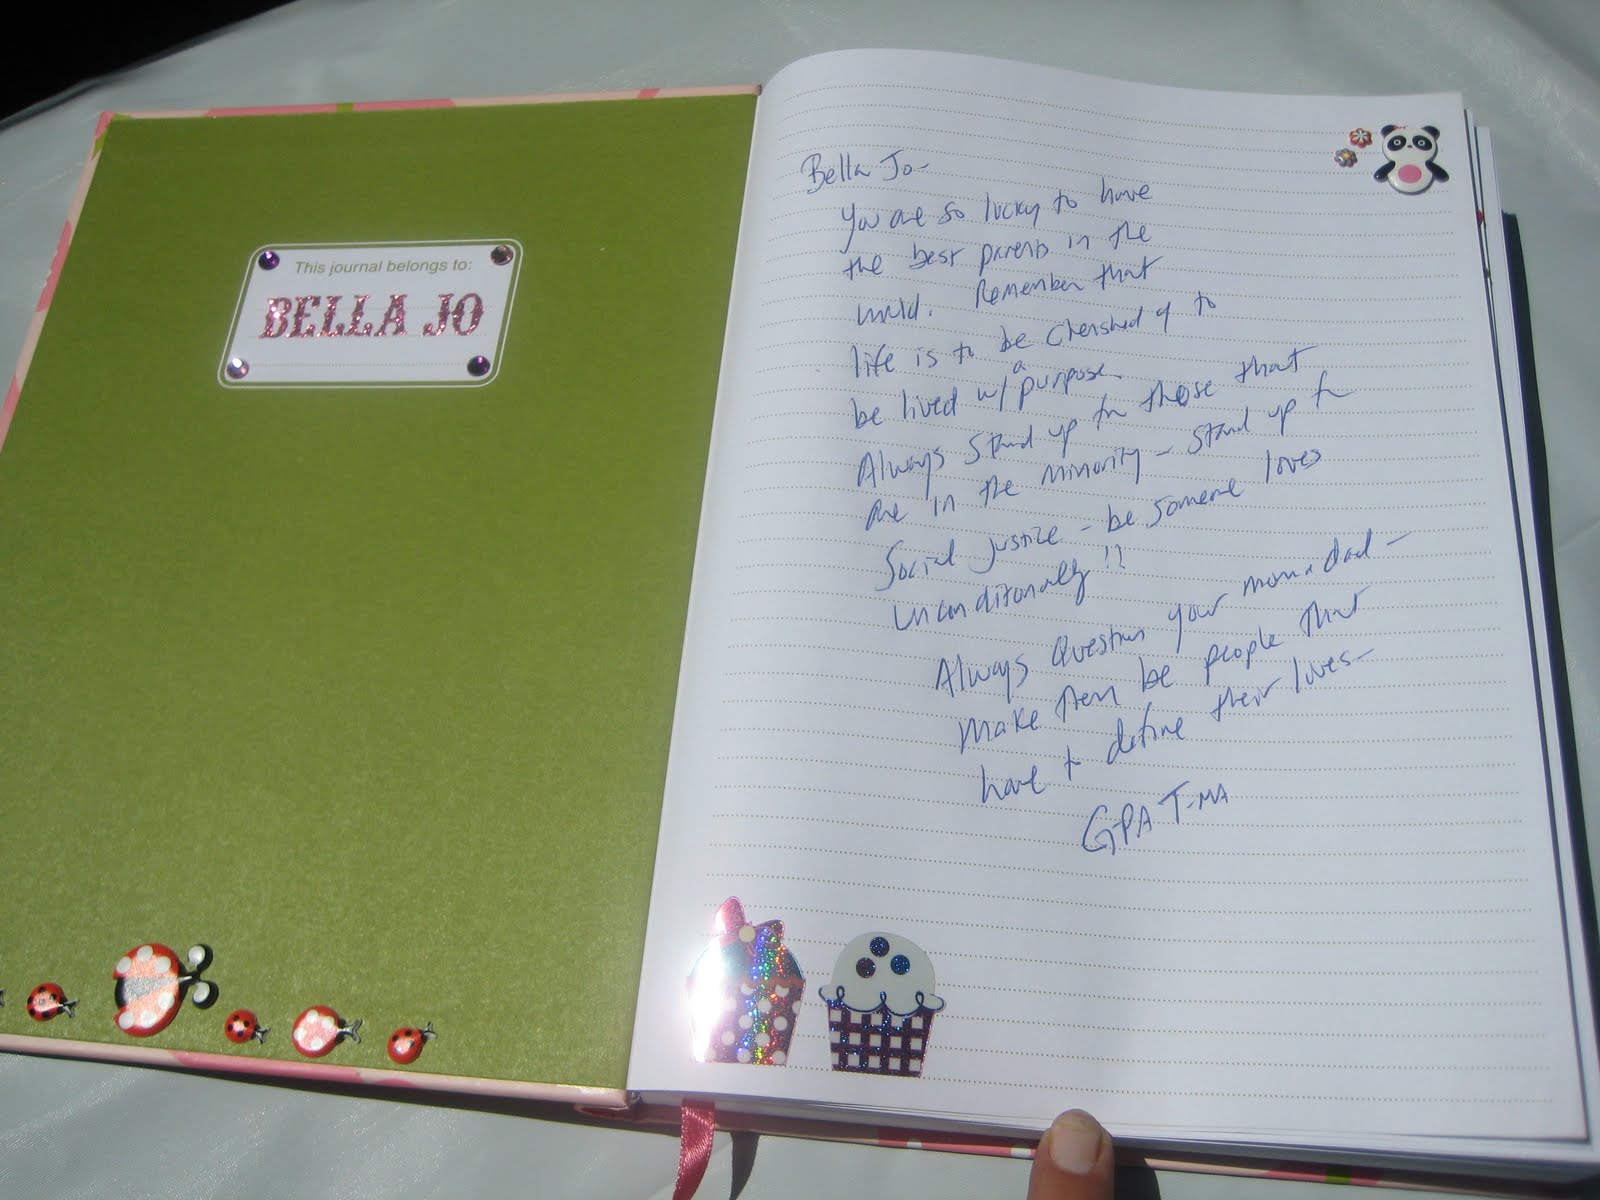 This journal belongs to:
BELLA JO
Bella Jo-
You are so lucky to have
the best parents in the
world. Remember that
life is to be cherished & to
be lived w/ a purpose.
Always stand up for those that
are in the minority - stand up for
Social justice - be someone loves
unconditonally!!
Always Question your mom & dad -
make them be people that
have to define their lives -
GPA T-MA